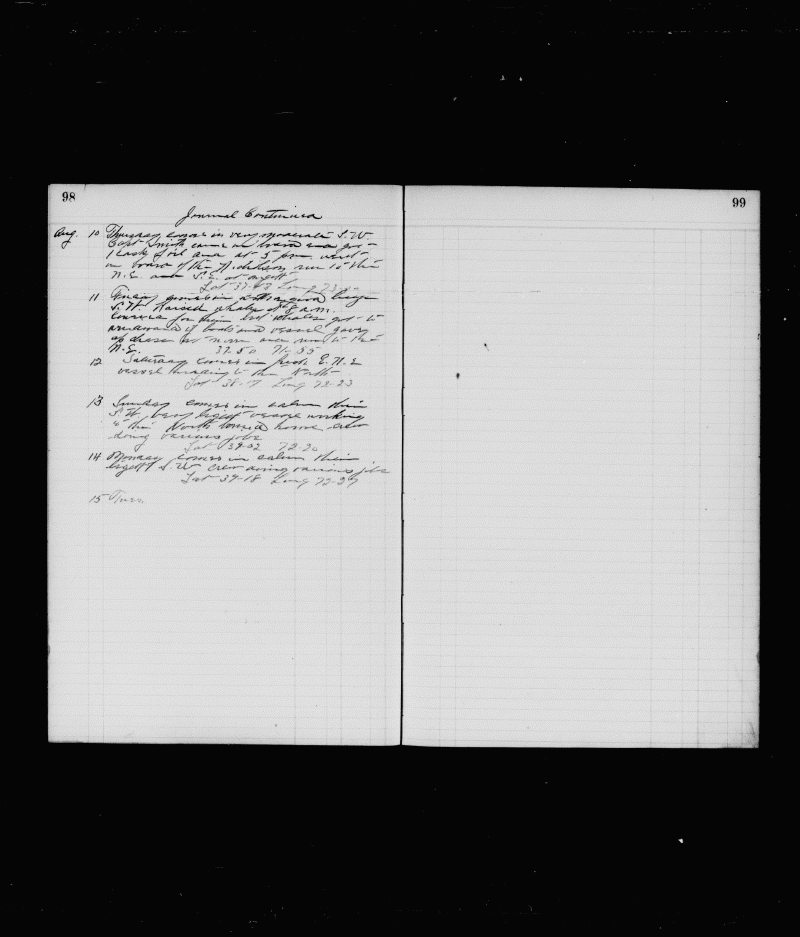 98
99
Journal Continued
Aug. 10 Thursday comes in very moderate S.W.
Capt Smith came on board and got
1 cask of oil and at 5 pm went
on board of the run to the
N.E. and S.E. at night
Lat 37-43 Long 73-
11 Friday comes in with a good breeze
S.W. Raised whales at 8 a.m.
for them but whales got to
windward of boats and vessel gave
up chase at noon and run to the
N.E. 37-50 71-55
12 Saturday comes in fresh E.N.E
vessel heading to the North
Lat 38-17 Long 72-23
13 Sunday comes in calm then
S.W. very light vessel working
to the North toward home crew
doing various jobs
Lat 39-02 72-20
14 Monday comes in calm then
light S.W crew doing various jobs
Lat 39-18 Long 72-27
15 Tues.